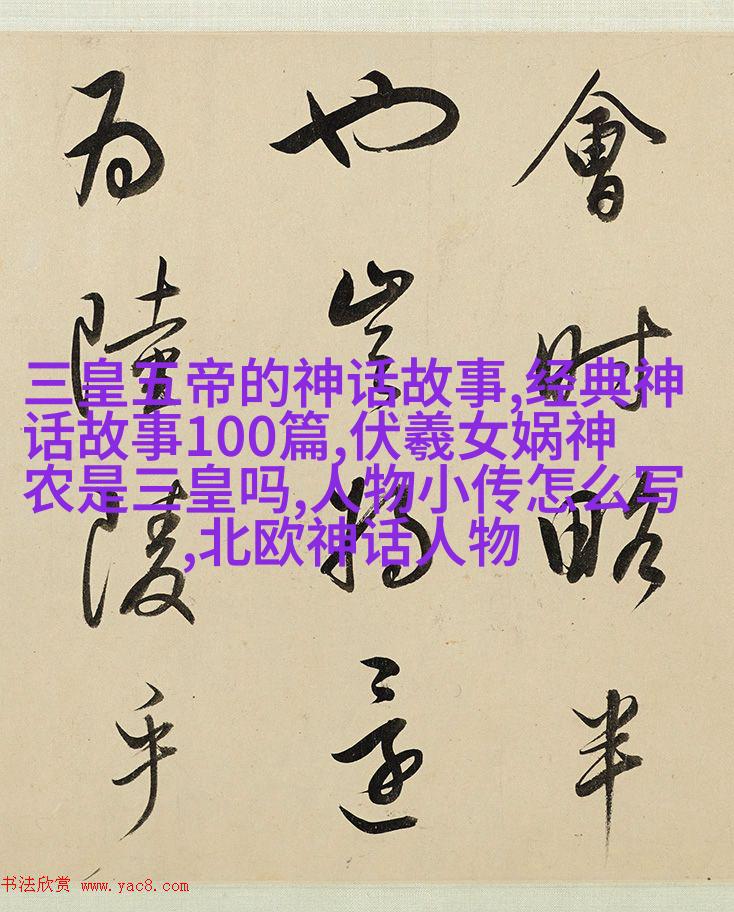 會時略半
也
為陸陵乎
三皇五帝的神话故事,经典神
话故事100篇,伏羲女娲神
农是三皇吗,人物小传怎么写
,北欧神话人物
书法欣赏 www.yac8.com